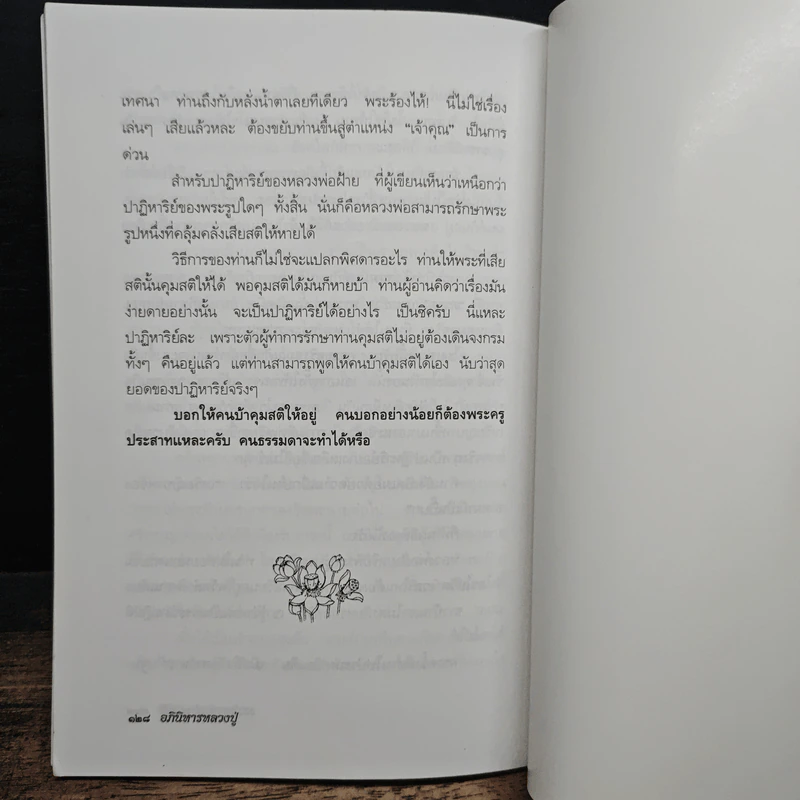 เทศนา ท่านถึงกับหลั่งน้ำตาเลยทีเดียว พระร้องไห้! นี่ไม่ใช่เรื่อง
เล่นๆ เสียแล้วหละ ต้องขยับท่านขึ้นสู่ตำแหน่ง “เจ้าคุณ” เป็นการ
ด่วน
สำหรับปาฏิหาริย์ของหลวงพ่อฝ้าย ที่ผู้เขียนเห็นว่าเหนือกว่า
ปาฏิหาริย์ของพระรูปใดๆ ทั้งสิ้น นั่นก็คือหลวงพ่อสามารถรักษาพระ
รูปหนึ่งที่คลุ้มคลั่งเสียสติให้หายได้
วิธีการของท่านก็ไม่ใช่จะแปลกพิศดารอะไร ท่านให้พระที่เสีย
สตินั้นคุมสติให้ได้ พอคุมสติได้มันก็หายบ้า ท่านผู้อ่านคิดว่าเรื่องมัน
ง่ายดายอย่างนั้น จะเป็นปาฏิหาริย์ได้อย่างไร เป็นซิครับ นี่แหละ
ปาฏิหาริย์ละ เพราะตัวผู้ทำการรักษาท่านคุมสติไม่อยู่ต้องเดินจงกรม
ทั้งๆ คืนอยู่แล้ว แต่ท่านสามารถพูดให้คนบ้าคุมสติได้เอง นับว่าสุด
ยอดของปาฏิหาริย์จริงๆ
บอกให้คนบ้าคุมสติให้อยู่ คนบอกอย่างน้อยก็ต้องพระครู
ประสาทแหละครับ คนธรรมดาจะทำได้หรือ
๑๒๘ อภินิหารหลวงปู่